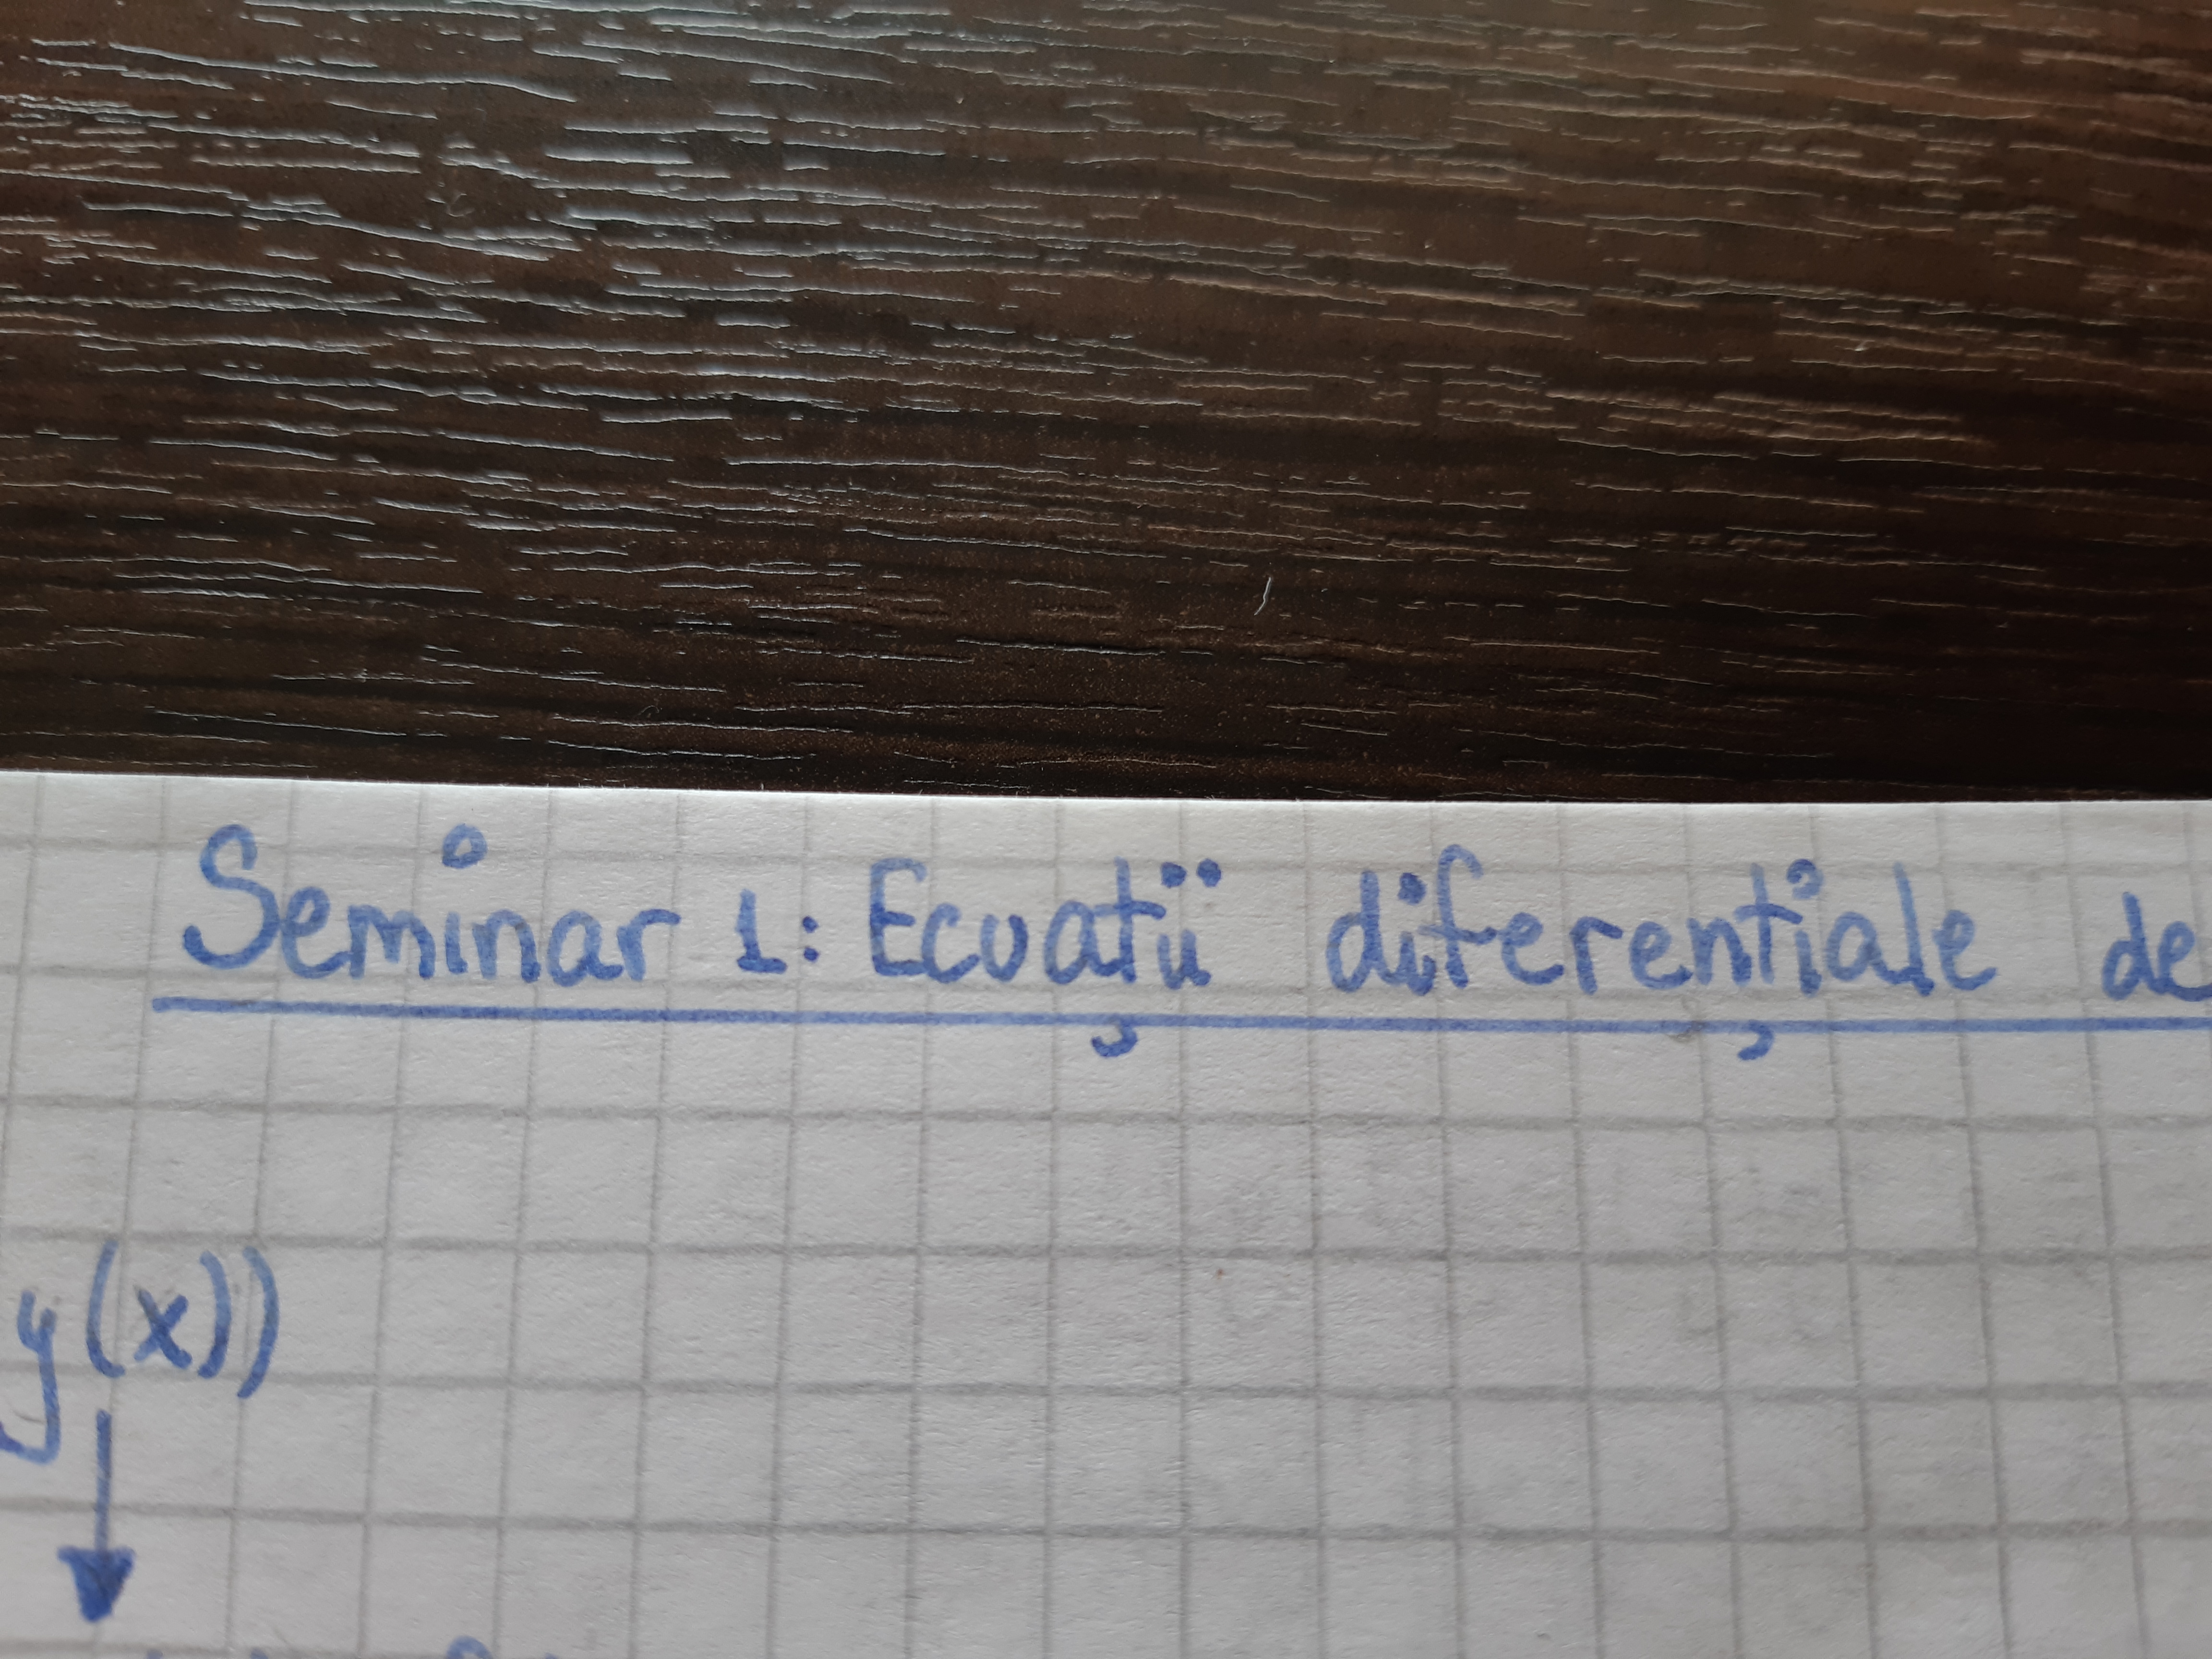 Seminar 1: Ecuații diferențiale de
y(x))